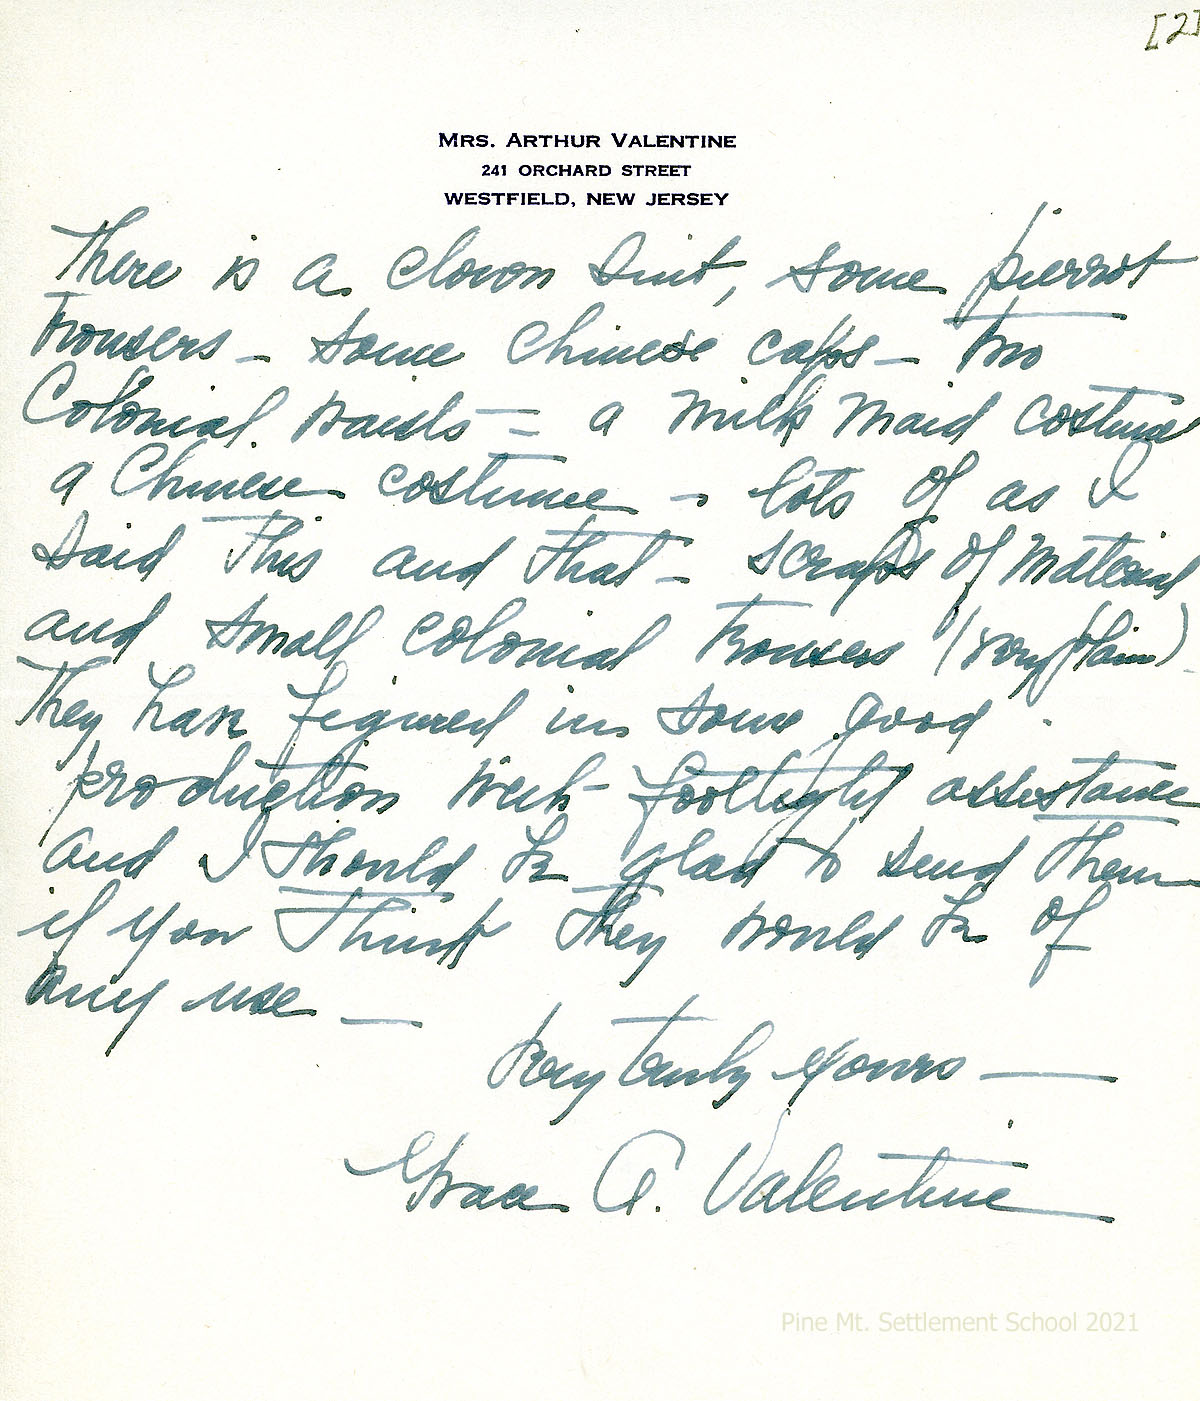 [2]
MRS. ARTHUR VALENTINE
241 ORCHARD STREET
WESTFIELD, NEW JERSEY
There is a clown suit, some pierrot
trousers – some Chinese caps – two
Colonial waists – a milk maid costume
a Chinese costume – lots of as I
said this and that – scraps of material
and small colonial trousers (very plain)
They have figured in some good
production with footlight assistance
and I should be glad to send them
if you think they would be of
any use –
Very truly yours –
Grace A. Valentine
Pine Mt. Settlement School 2021